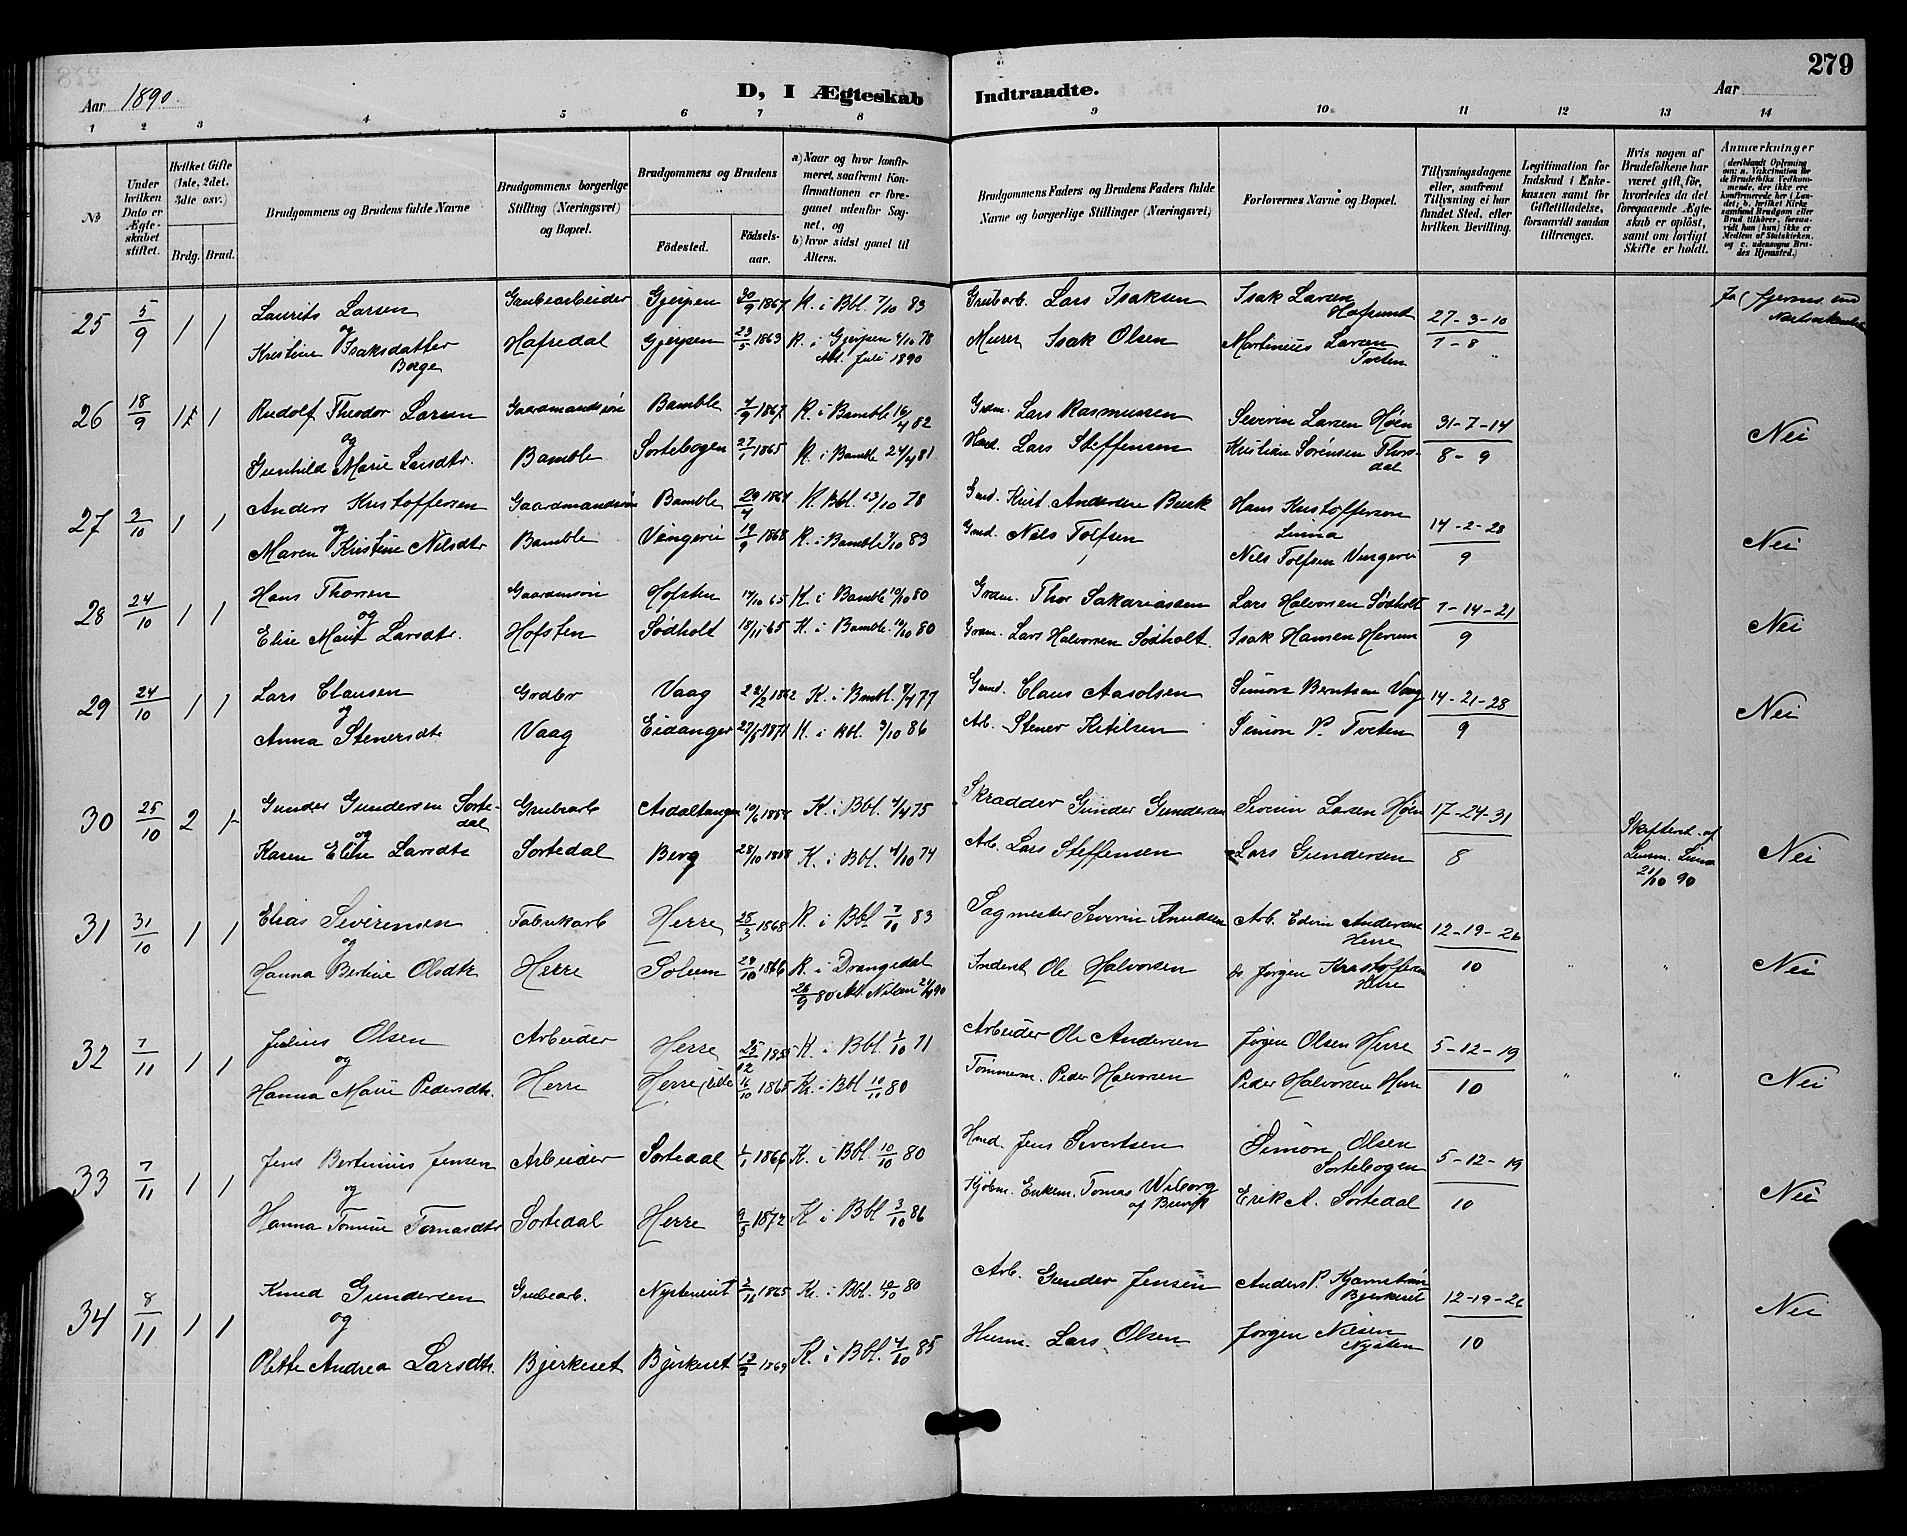 279
Aar 1890.
D, I Ægteskab Indtraadte.
Aar
1 2 3 4 5 6 7 8 9 10 11 12 13 14
No
Under hvilken Dato er Ægteskabet stiftet.
Hvilket Gifte (1ste, 2det, 3dte osv.)
Brdg. Brud.
Brudgommens og Brudens fulde Navne
Brudgommens borgerlige Stilling (Næringsvei) og Bopæl.
Brudgommens og Brudens
Fødested.
Fødselsaar.
a) Naar og hvor konfirmeret, saafremt Konfirmationen er foregaaet udenfor Sognet, og
b) hvor sidst gaaet til Alters.
Brudgommens Faders og Brudens Faders fulde Navne og borgerlige Stillinger (Næringsvei)
Forlovernes Navne og Bopæl.
Tillysningsdagene eller, saafremt Tillysning ei har fundet Sted, efter hvilken Bevilling.
Legitimation for Indskud i Enkekassen samt for Giftetilladelse, forsaavidt saadan tiltrænges.
Hvis nogen af Brudefolkene har været gift før, hvorledes da det foregaaende Ægteskab er opløst, samt om lovligt Skifte er holdt.
Anmærkninger
25 5/9 1 1 Laurits Larsen Grubearbeider Gjerpen 30/9 1867 K. i Bbl. 7/10 83 Grubarb. Lars Isaksen Isak Larsen Hafsund 27-3-10
og Kristine Isaksdatter Borge Hafredal Gjerpen 23/5 1863 K. i Gjerpen 6/10 78 Alt. Juli 1890 Murer Isak Olsen Martinius Larsen Tveten 7-8
26 18/9 1 1 Rudolf Theodor Larsen Gaardmandssøn Bamble 4/9 1867 K. i Bamble 16/4 82 Grdm. Lars Rasmussen Severin Larsen Høen 31-7-14 Nei
og Gunhild Marie Larsdtr. Bamble Sortebogen 27/1 1865 K. i Bamble 24/4 81 Lars Steffensen Kristian Sørensen Thorsdal 8-9
27 3/10 1 1 Anders Kristoffersen Gaardmandssøn Bamble 29/4 1864 K. Bbl. 13/10 78 Gmd. Krist. Andersen Hans Kristoffersen Linna 14-2-28 Nei
og Maren Kristine Nilsdtr Bamble Vingerei 19/9 1868 K. i Bamble 7/10 83 Gmd. Nils Tolfsen Nils Tolfsen Vingerei 9
28 24/10 1 1 Hans Thorsen Gaardmsøn Hofsten 14/10 65 K. i Bamble 10/10 80 Grdm. Thor Sakariassen Lars Halvorsen Sødholt 7-14-21 Nei
og Elise Marie Larsdtr. Hofsten Sødholt 18/11 65 K. i Bamble 10/10 80 Grdm. Lars Halvorsen Sødholt. Isak Hansen Herum 9
29 24/10 1 1 Lars Clausen Grdbr Vaag 22/2 1862 K. i Bambl. 8/4 77 Gmd. Claus Aasolsen Simon Berntsen Vaag 14-21-28 Nei
og Anna Stenersdtr Vaag Eidanger 27/5 1871 K. i Bbl. 3/10 86 Arb. Stener Ketilsen Simon P. Tveten 9
30 25/10 2 1 Gunder Gundersen Sortedal Grubearb Asdaltangen 10/6 1854 K. i Bbl. 4/4 75 Skrædder Gunder Gundersen Severin Larsen Høen 17-24-31 Skifteat. af Lensm. Linna 21/10 90
og Karen Elise Larsdtr Sortedal Berg 28/10 1858 K. i Bbl. 4/10 74 Arb. Lars Steffensen Lars Gundersen 8 Nei
31 31/10 1 1 Elias Severinsen Fabrikarb Herre 28/3 1868 K. i Bbl 7/10 83 Sagmester Severin Knudsen Arb. Edvin Andersen Herre 12-19-26
og Hanna Bertine Olsdtr Herre Solum 24/10 1866 K. i Drangedal 26/9 80 Alt. 90 Inderst Ole Halvorsen Jørgen Kristoffersen Herre 10 " " Nei
32 7/11 1 1 Julius Olsen Arbeider Herre 25/12 1855 K. i Bbl. 1/10 71 Arbeider Ole Andersen Jørgen Olsen Herre 5-12-19
og Hanna Marie Pedersdtr. Herre Herre 16/10 1865 K. i Bbl 10/10 80 Tømmerm. Peder Halvorsen Peder Halvorsen Herre 10 " " Nei
33 7/11 1 1 Jens Bertinius Jensen Arbeider Sortedal 1/1 1866 K. i Bbl. 10/10 80 Hmd. Jens Sivertsen Simon Olsen Sortebogen 5-12-19
og Hanna Tomine Tomasdtr Sortedal Herre 9/5 1872 K. i Bbl 3/10 86 Kjøbm. Enkem. Tomas Wiborg af Brevik Erik A. Sortedal 10 Nei
34 8/11 1 1 Knud Gundersen Grubearb. Nystenriet 2/11 1865 K. i Bbl. 10/10 80 Arb. Gunder Jensen Anders P. Bjerkeset 12-19-26 Nei
og Olette Andrea Larsdtr. Bjerkeset Bjerkeset 1869 K. i Bbl. 4/10 85 Husm. Lars Olsen Jørgen Nilsen Nysten 10